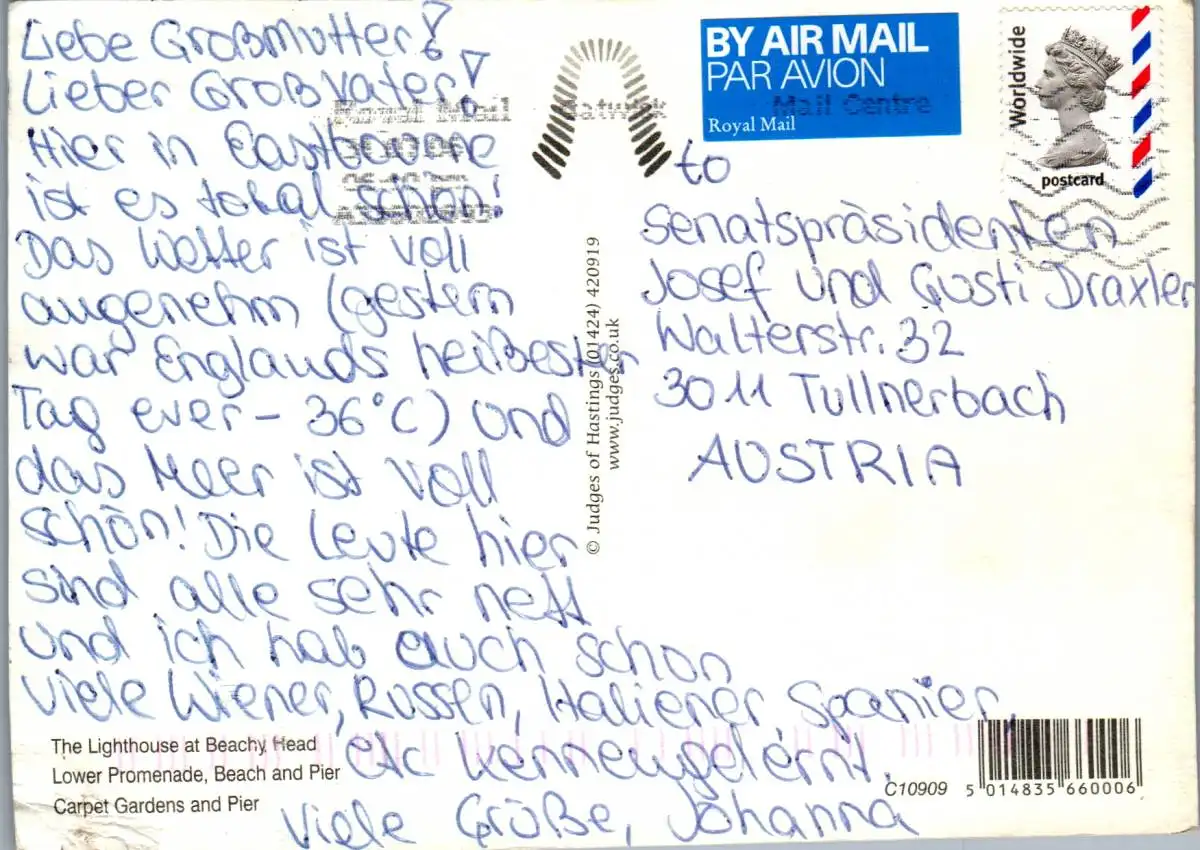 Liebe Großmutter!
Lieber Großvater!
Hier in Eastbourne
ist es total schön!
Das Wetter ist voll
angenehm (gestern
war Englands heißester
Tag ever - 36°C) und
das Meer ist voll
schön! Die Leute hier
sind alle sehr nett
und ich hab auch schon
viele Wiener, Russen, Italiener, Spanier,
etc kennengelernt.
Viele Grüße, Johanna
The Lighthouse at Beachy Head
Lower Promenade, Beach and Pier
Carpet Gardens and Pier
Royal Mail
Gatwick
Mail Centre
© Judges of Hastings (01424) 420919
www.judges.co.uk
BY AIR MAIL
PAR AVION
Royal Mail
Worldwide
postcard
to
Senatspräsidenten
Josef und Gusti Draxler
Walterstr. 32
3011 Tullnerbach
AUSTRIA
C10909
5 014835 660006